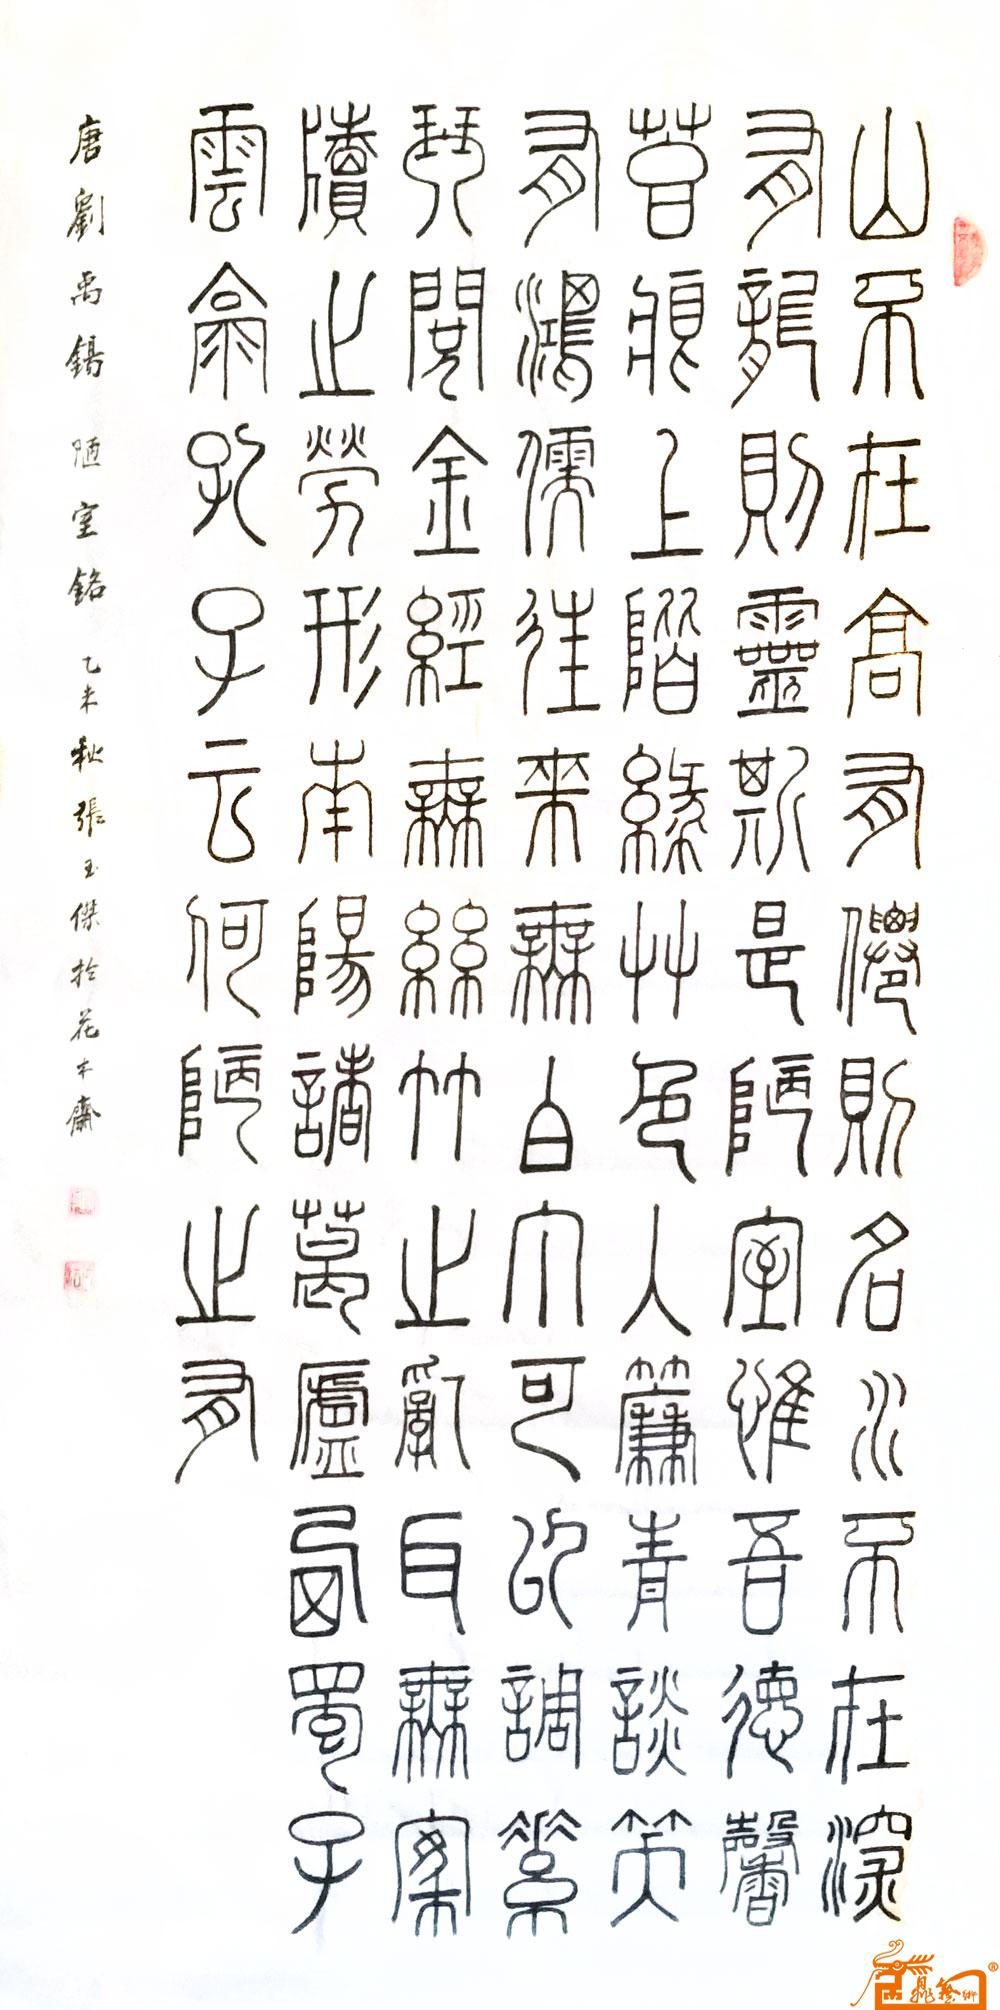 山不在高有僊則名水不在深
有龍則靈斯是陋室惟吾德馨
苔痕上階緣艸色入簾青談笑
有鴻儒往來無白丁可以調素
琴閱金經無絲竹之亂耳無案
牘之勞形南陽諸葛廬西蜀子
雲亭孔子云何陋之有
唐劉禹錫陋室銘乙未秋張玉傑於花木齋